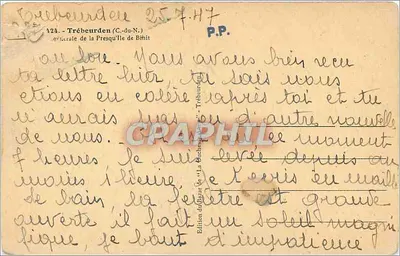 Trebeurden 25.7.47
P.P.
124. - Trébeurden (C.-du-N.)
générale de la Presqu'île de Bihit
Nous avons bien reçu
ta lettre hier, tu sais nous
étions en colère après toi et tu
n'aurais pas eu d'autre nouvelle
de nous. en ce moment
7 heures, je suis levée depuis au
moins 1 heure, je t'écris en maillot
de bain, la fenêtre est grande
ouverte il fait un soleil magni
fique, je bout d'impatience
CPARAMA